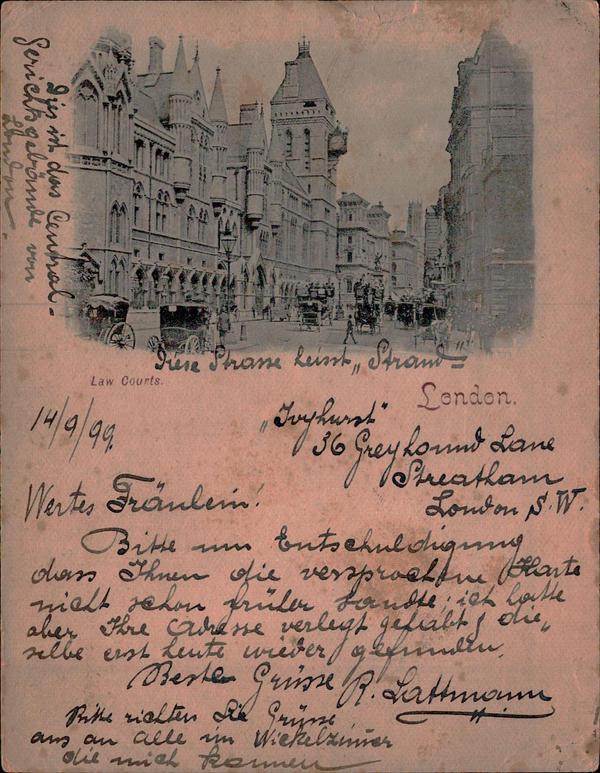 Dies ist das Central-
Gerichtsgebäude von
London.
Diese Strasse heisst „Strand"
Law Courts.
London.
14/9/99.
„Ivyhurst"
36 Greyhound Lane
Streatham
London S.W.
Wertes Fräulein!
Bitte um Entschuldigung
dass Ihnen die versprochene Karte
nicht schon früher sandte; ich hatte
aber Ihre Adresse verlegt gehabt & die„
selbe erst heute wieder gefunden.
Beste Grüsse R. Lattmann
Bitte richten Sie Grüsse
aus an alle im Wickelzimmer
die mich kannen